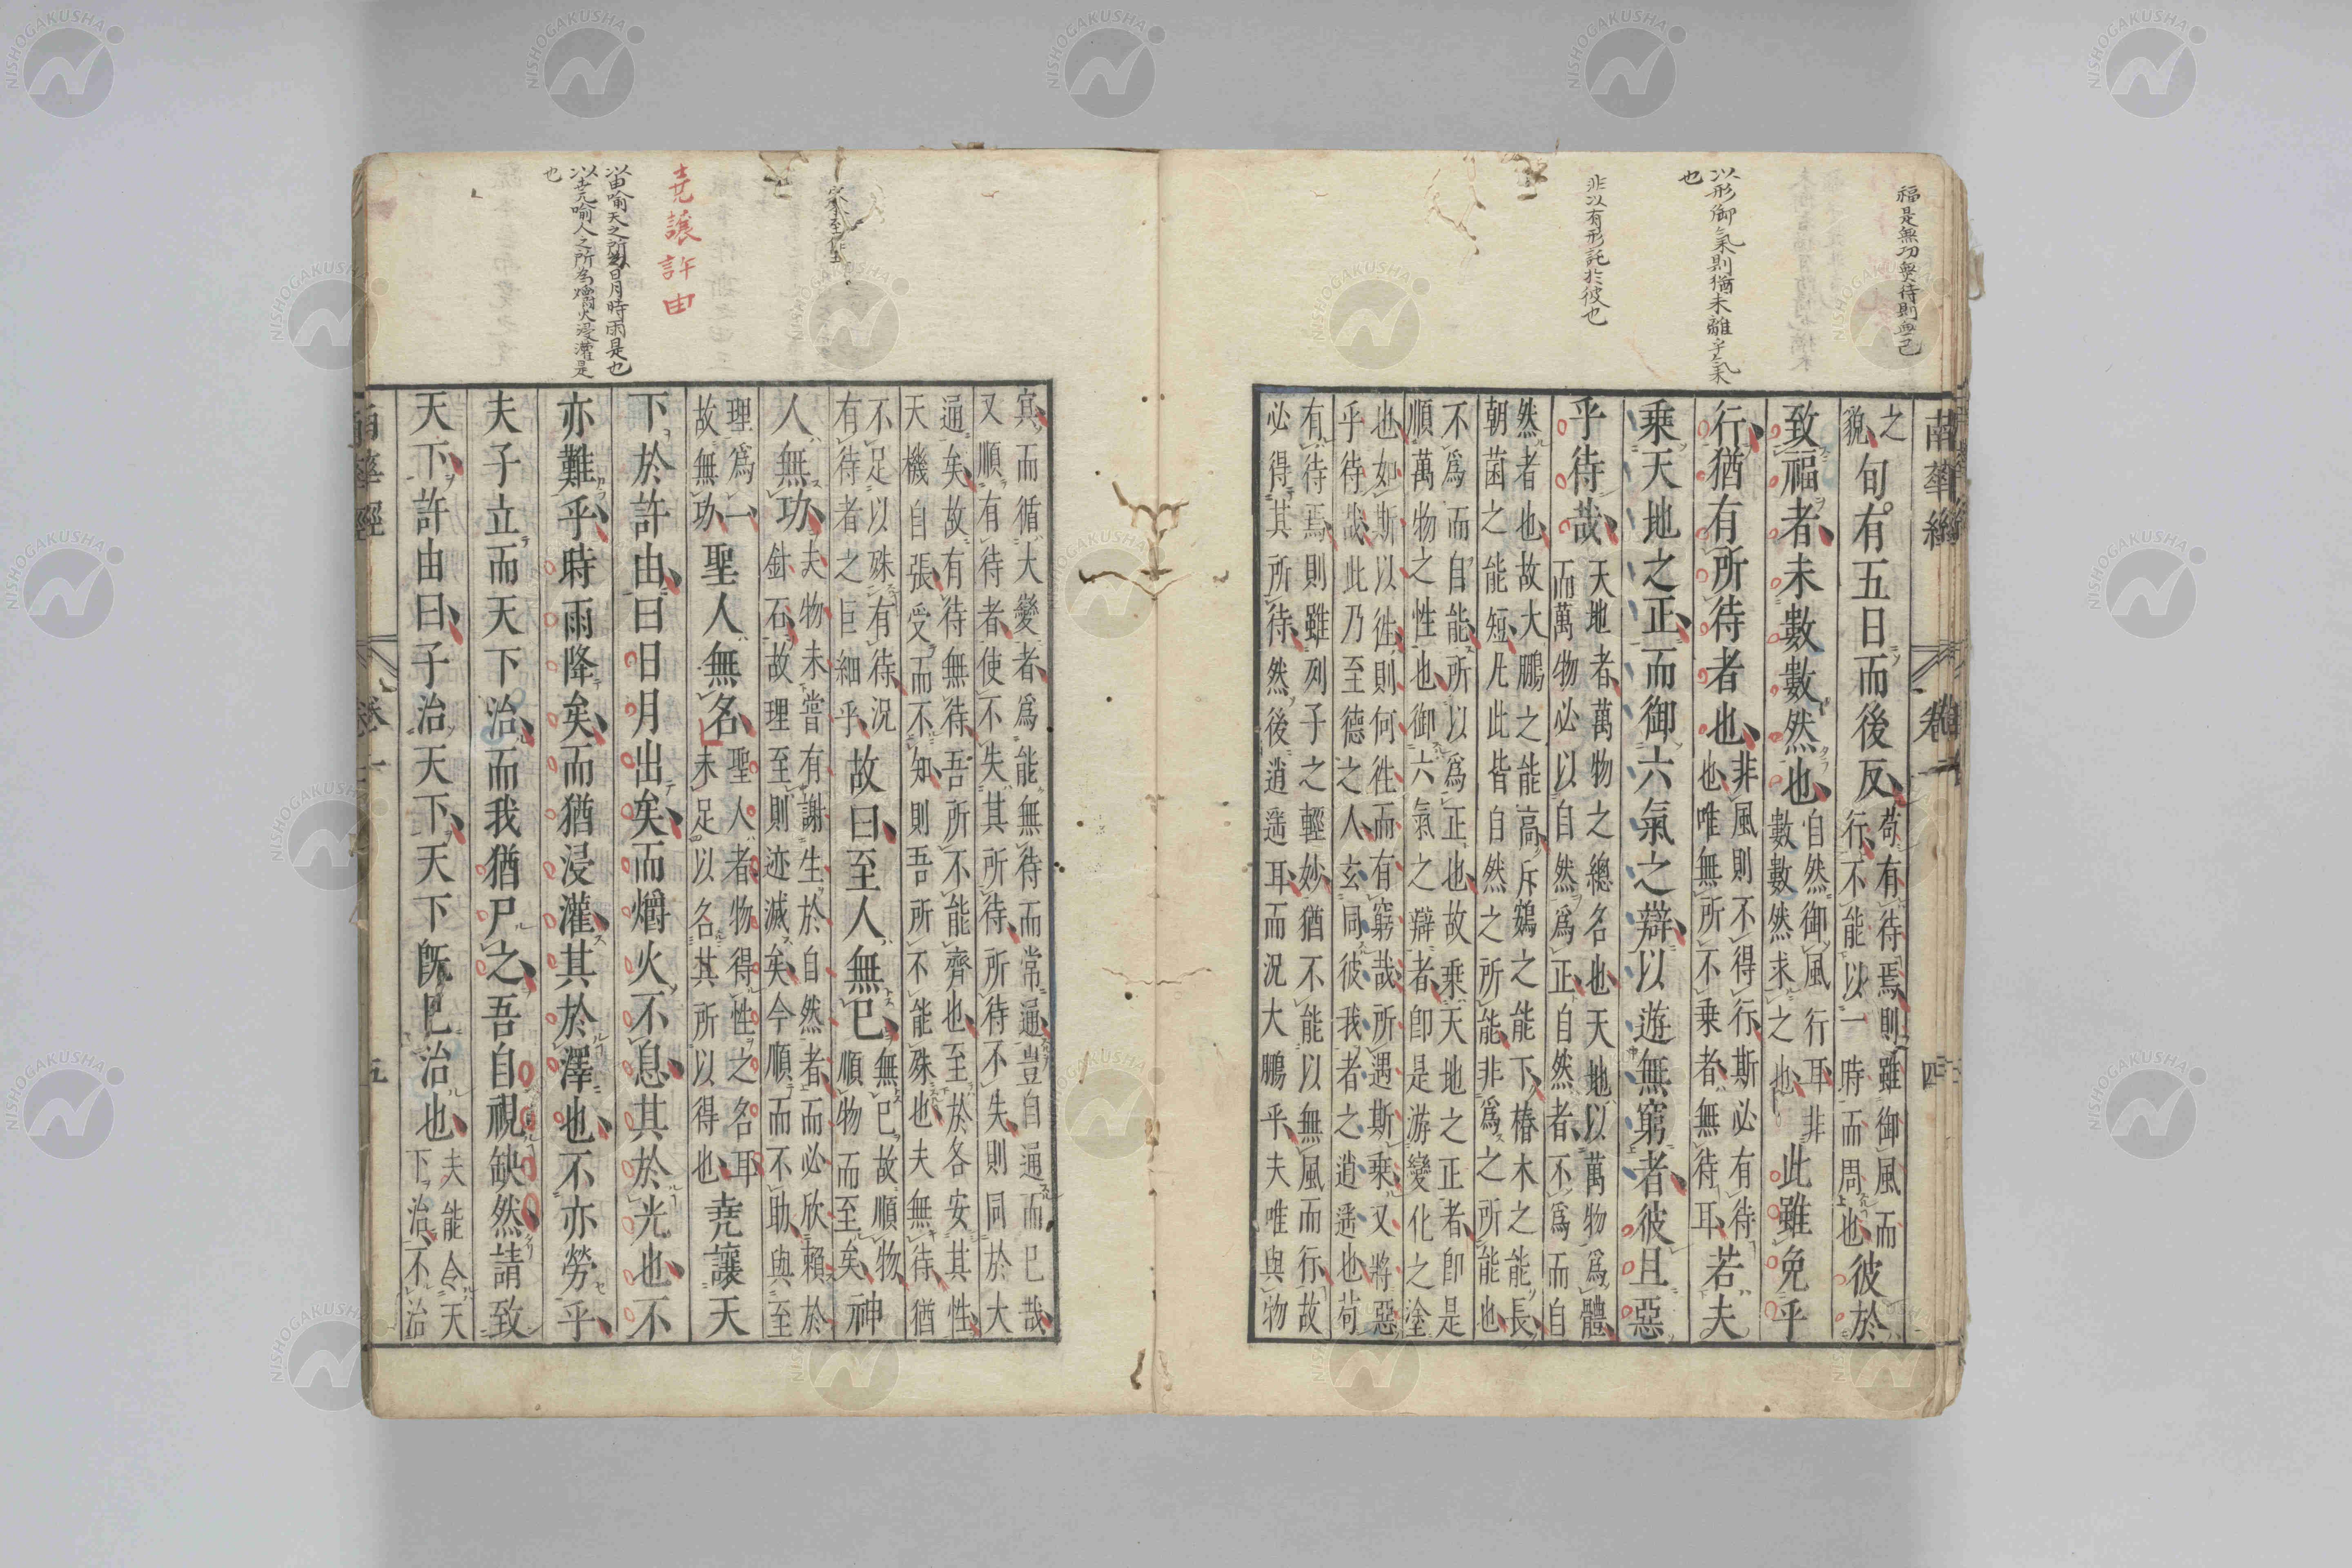 福是無功與待則無己
以形御氣則猶未離乎氣
也
非以有形託於彼也
南華經
卷一
四
之
貌
旬有五日而後反
苟有待焉則雖御風而
行不能以一時而周也
彼於
致福者未數數然也
自然御風行耳非
數數然求之也
此雖免乎
行猶有所待者也
非風則不得行斯必有待
也唯無所不乗者無待耳
若夫
乗天地之正而御六氣之辯以遊無窮者彼且惡
乎待哉
天地者萬物之總名也天地以萬物爲體
而萬物必以自然爲正自然者不爲而自
然者也故大鵬之能高斥鷃之能下椿木之能長
朝菌之能短凡此皆自然之所能非爲之所能也
不爲而自能所以爲正也故乗天地之正者即是
順萬物之性也御六氣之辯者即是游變化之塗
也如斯以徃則何徃而有窮哉所遇斯乗又將惡
乎待哉此乃至德之人玄同彼我者之逍遥也苟
有待焉則雖列子之輕妙猶不能以無風而行故
必得其所待然後逍遥耳而況大鵬乎夫唯與物
冥而循大變者爲能無待而常通豈自通而已哉
又順有待者使不失其所待所待不失則同於大
通矣故有待無待吾所不能齊也至於各安其性
天機自張受而不知則吾所不能殊也夫無待猶
不足以殊有待況
有待者之巨細乎
故曰至人無已
無已故順物
順物而至矣
神
人無功
夫物未嘗有謝生於自然者而必欣賴於
針石故理至則迹滅矣今順而不助與至
理爲一
故無功
聖人無名
聖人者物得性之名耳
未足以名其所以得也
堯讓天
下於許由曰日月出矣而爝火不息其於光也不
亦難乎時雨降矣而猶浸灌其於澤也不亦勞乎
夫子立而天下治而我猶尸之吾自視缺然請致
天下許由曰子治天下天下旣已治也
夫能令天
下治不治
堯讓許由
以由喻天之所日月時雨是也
以堯喻人之所為爝火浸灌是
也
南華經
卷一
五
NISHOGAKUSHA